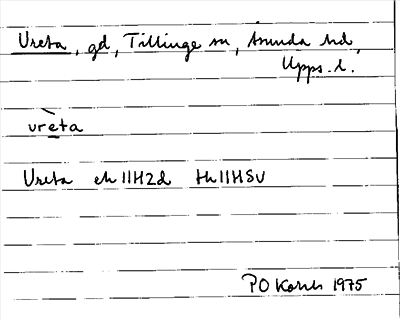 Vreta, gd, Tillinge sn, Åsunda hd,
Upps. l.
vrèta
Vreta ek 11H2d tk 11HSV
PO 1975